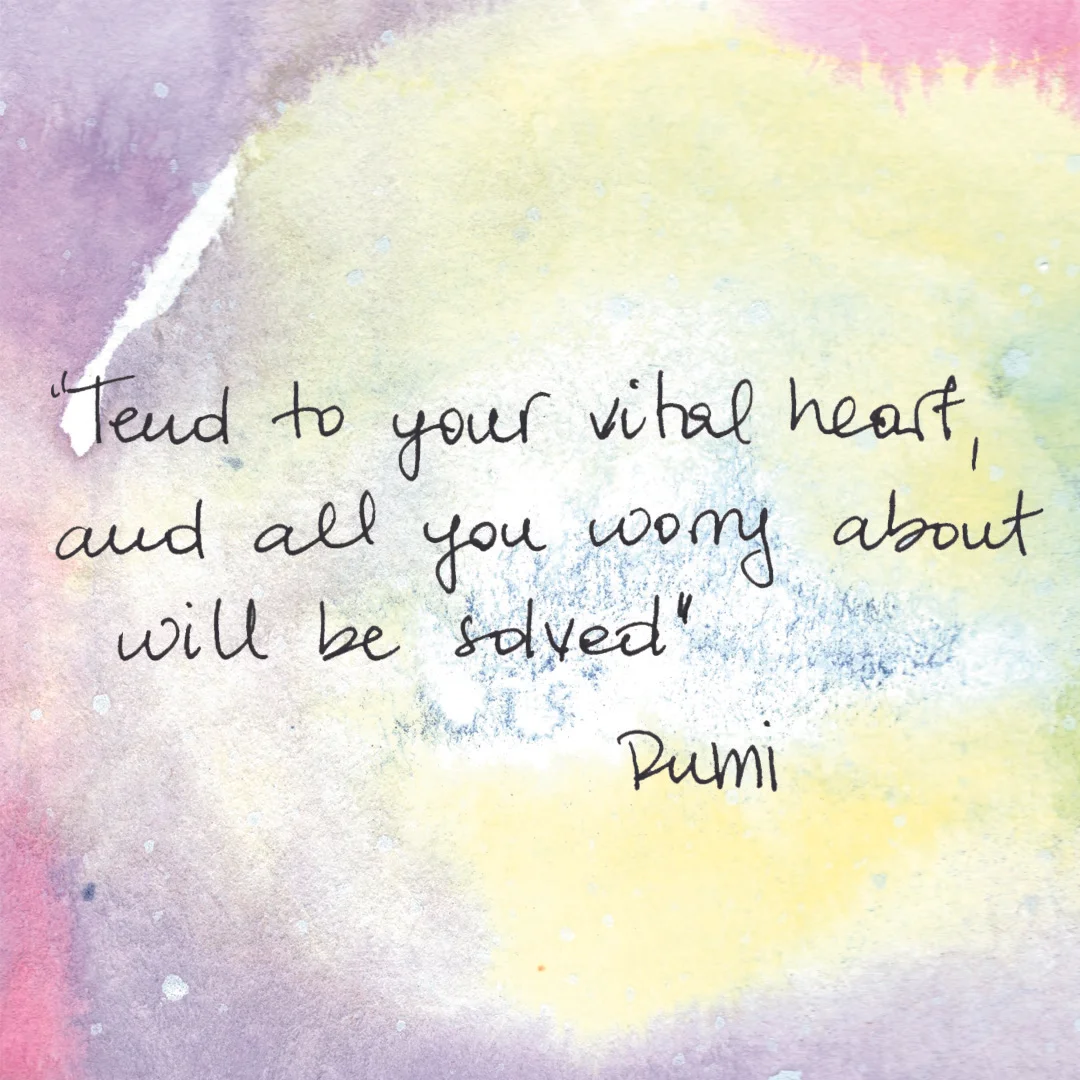 "Tend to your vital heart,
and all you worry about
will be solved"
Rumi